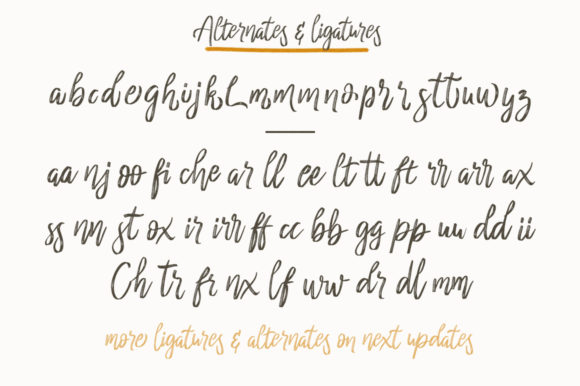 Alternates & ligatures
abcdeghijklmmmnoprrsttuuwyz
aa nj oo fi che ar ll ee lt tt ft rr arr ax
ss nn st ox ir irr ff cc bb gg pp uu dd ii
Ch tr fr nx lf urw dr dl mm
more ligatures & alternates on next updates